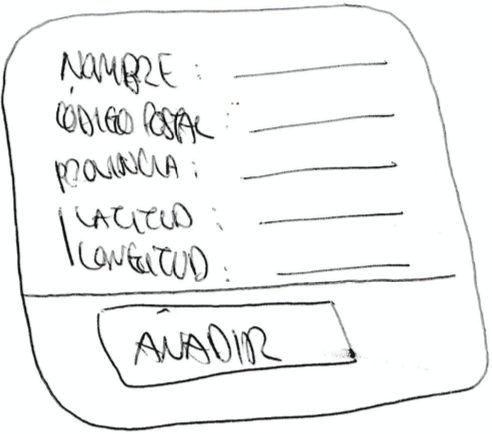 NOMBRE:
CÓDIGO POSTAL:
PROVINCIA:
LATITUD:
LONGITUD:
AÑADIR